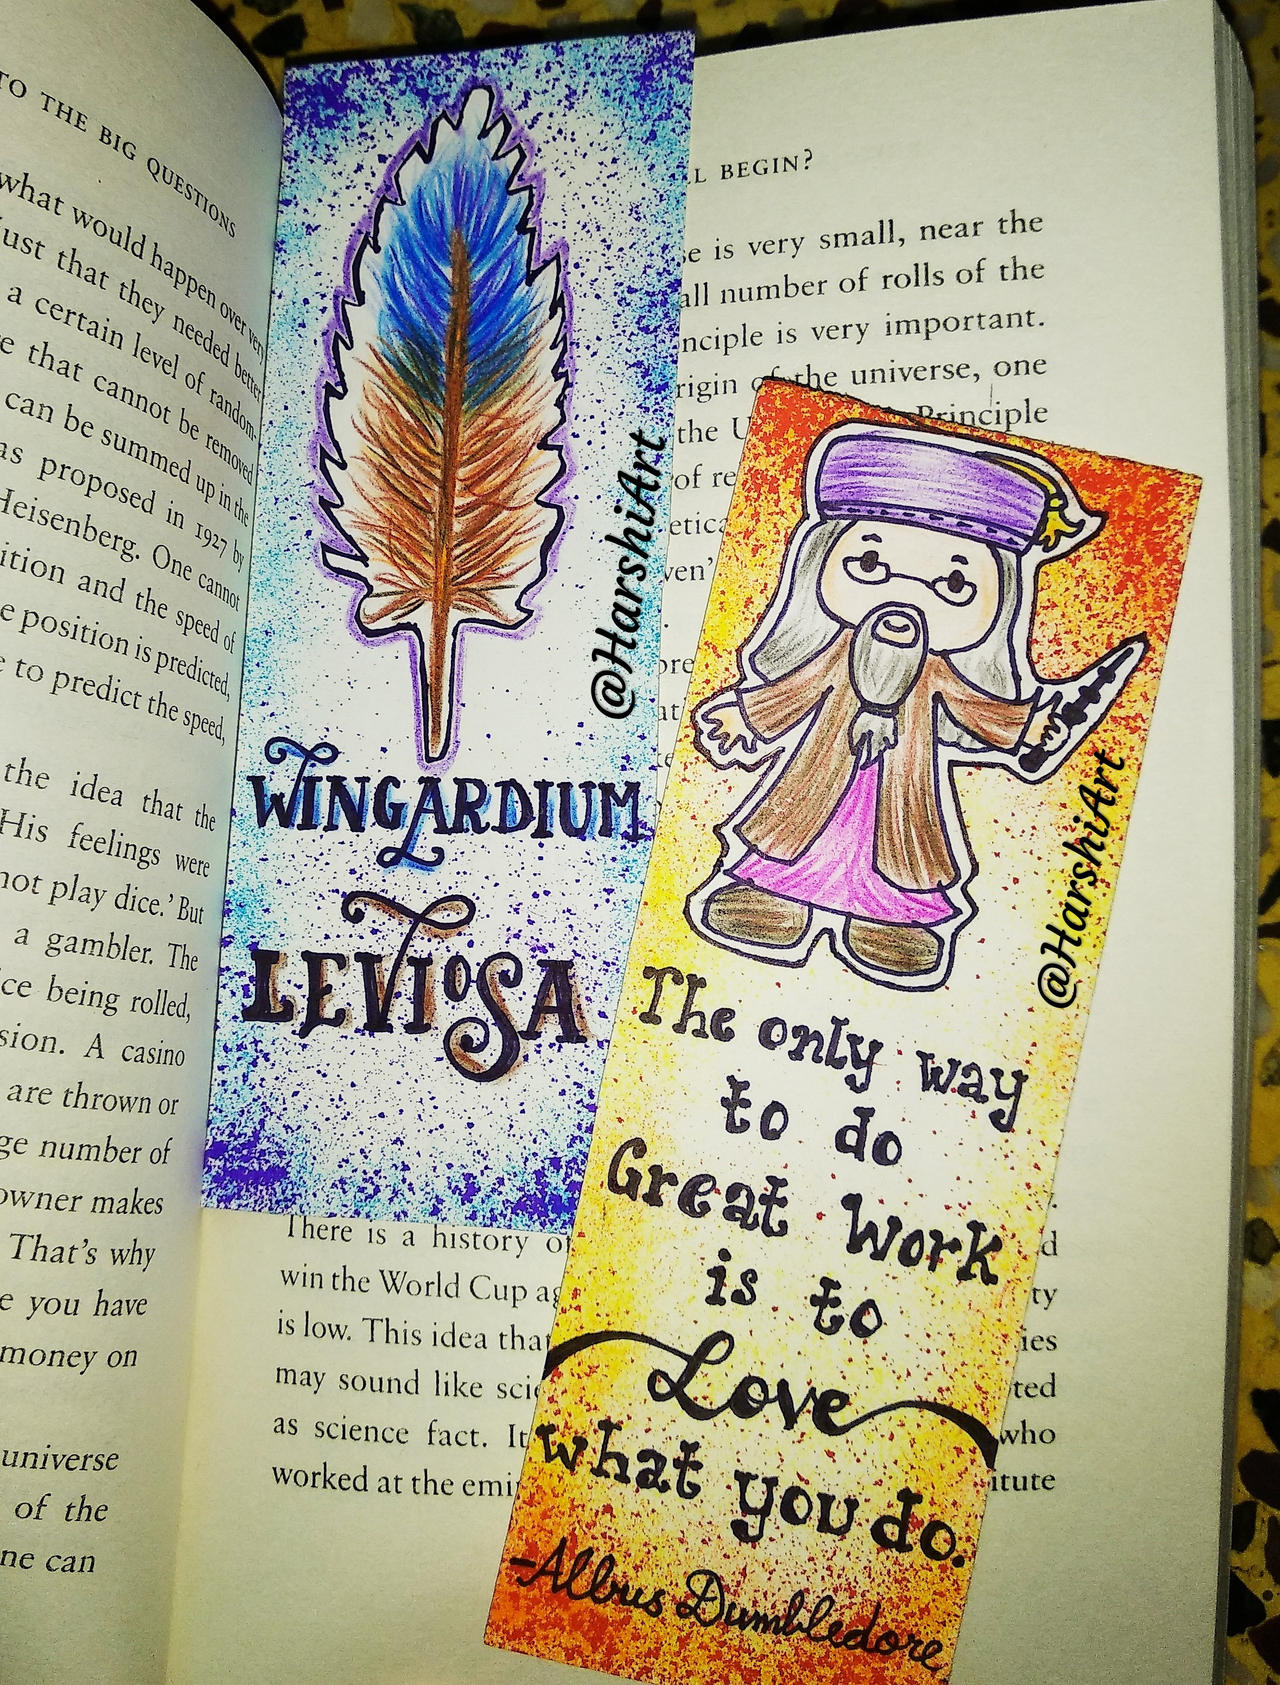 TO THE BIG QUESTIONS
what would happen over very
just that they needed better
a certain level of random-
e that cannot be removed
can be summed up in the
as proposed in 1927 by
Heisenberg. One cannot
ition and the speed of
e position is predicted,
e to predict the speed,
the idea that the
His feelings were
not play dice.' But
a gambler. The
ce being rolled,
sion. A casino
are thrown or
ge number of
owner makes
That's why
e you have
money on
universe
of the
ne can
WINGARDIUM
LEVIOSA
@HarshiArt
L BEGIN?
se is very small, near the
all number of rolls of the
nciple is very important.
rigin of the universe, one
the U Principle
of re
etica
ven'
pre
at
There is a history of
win the World Cup ag
is low. This idea that
may sound like scie
as science fact. It
worked at the emi
d
ty
ies
ted
who
itute
@HarshiArt
The only way
to do
Great Work
is to
Love
what you do.
-Albus Dumbledore